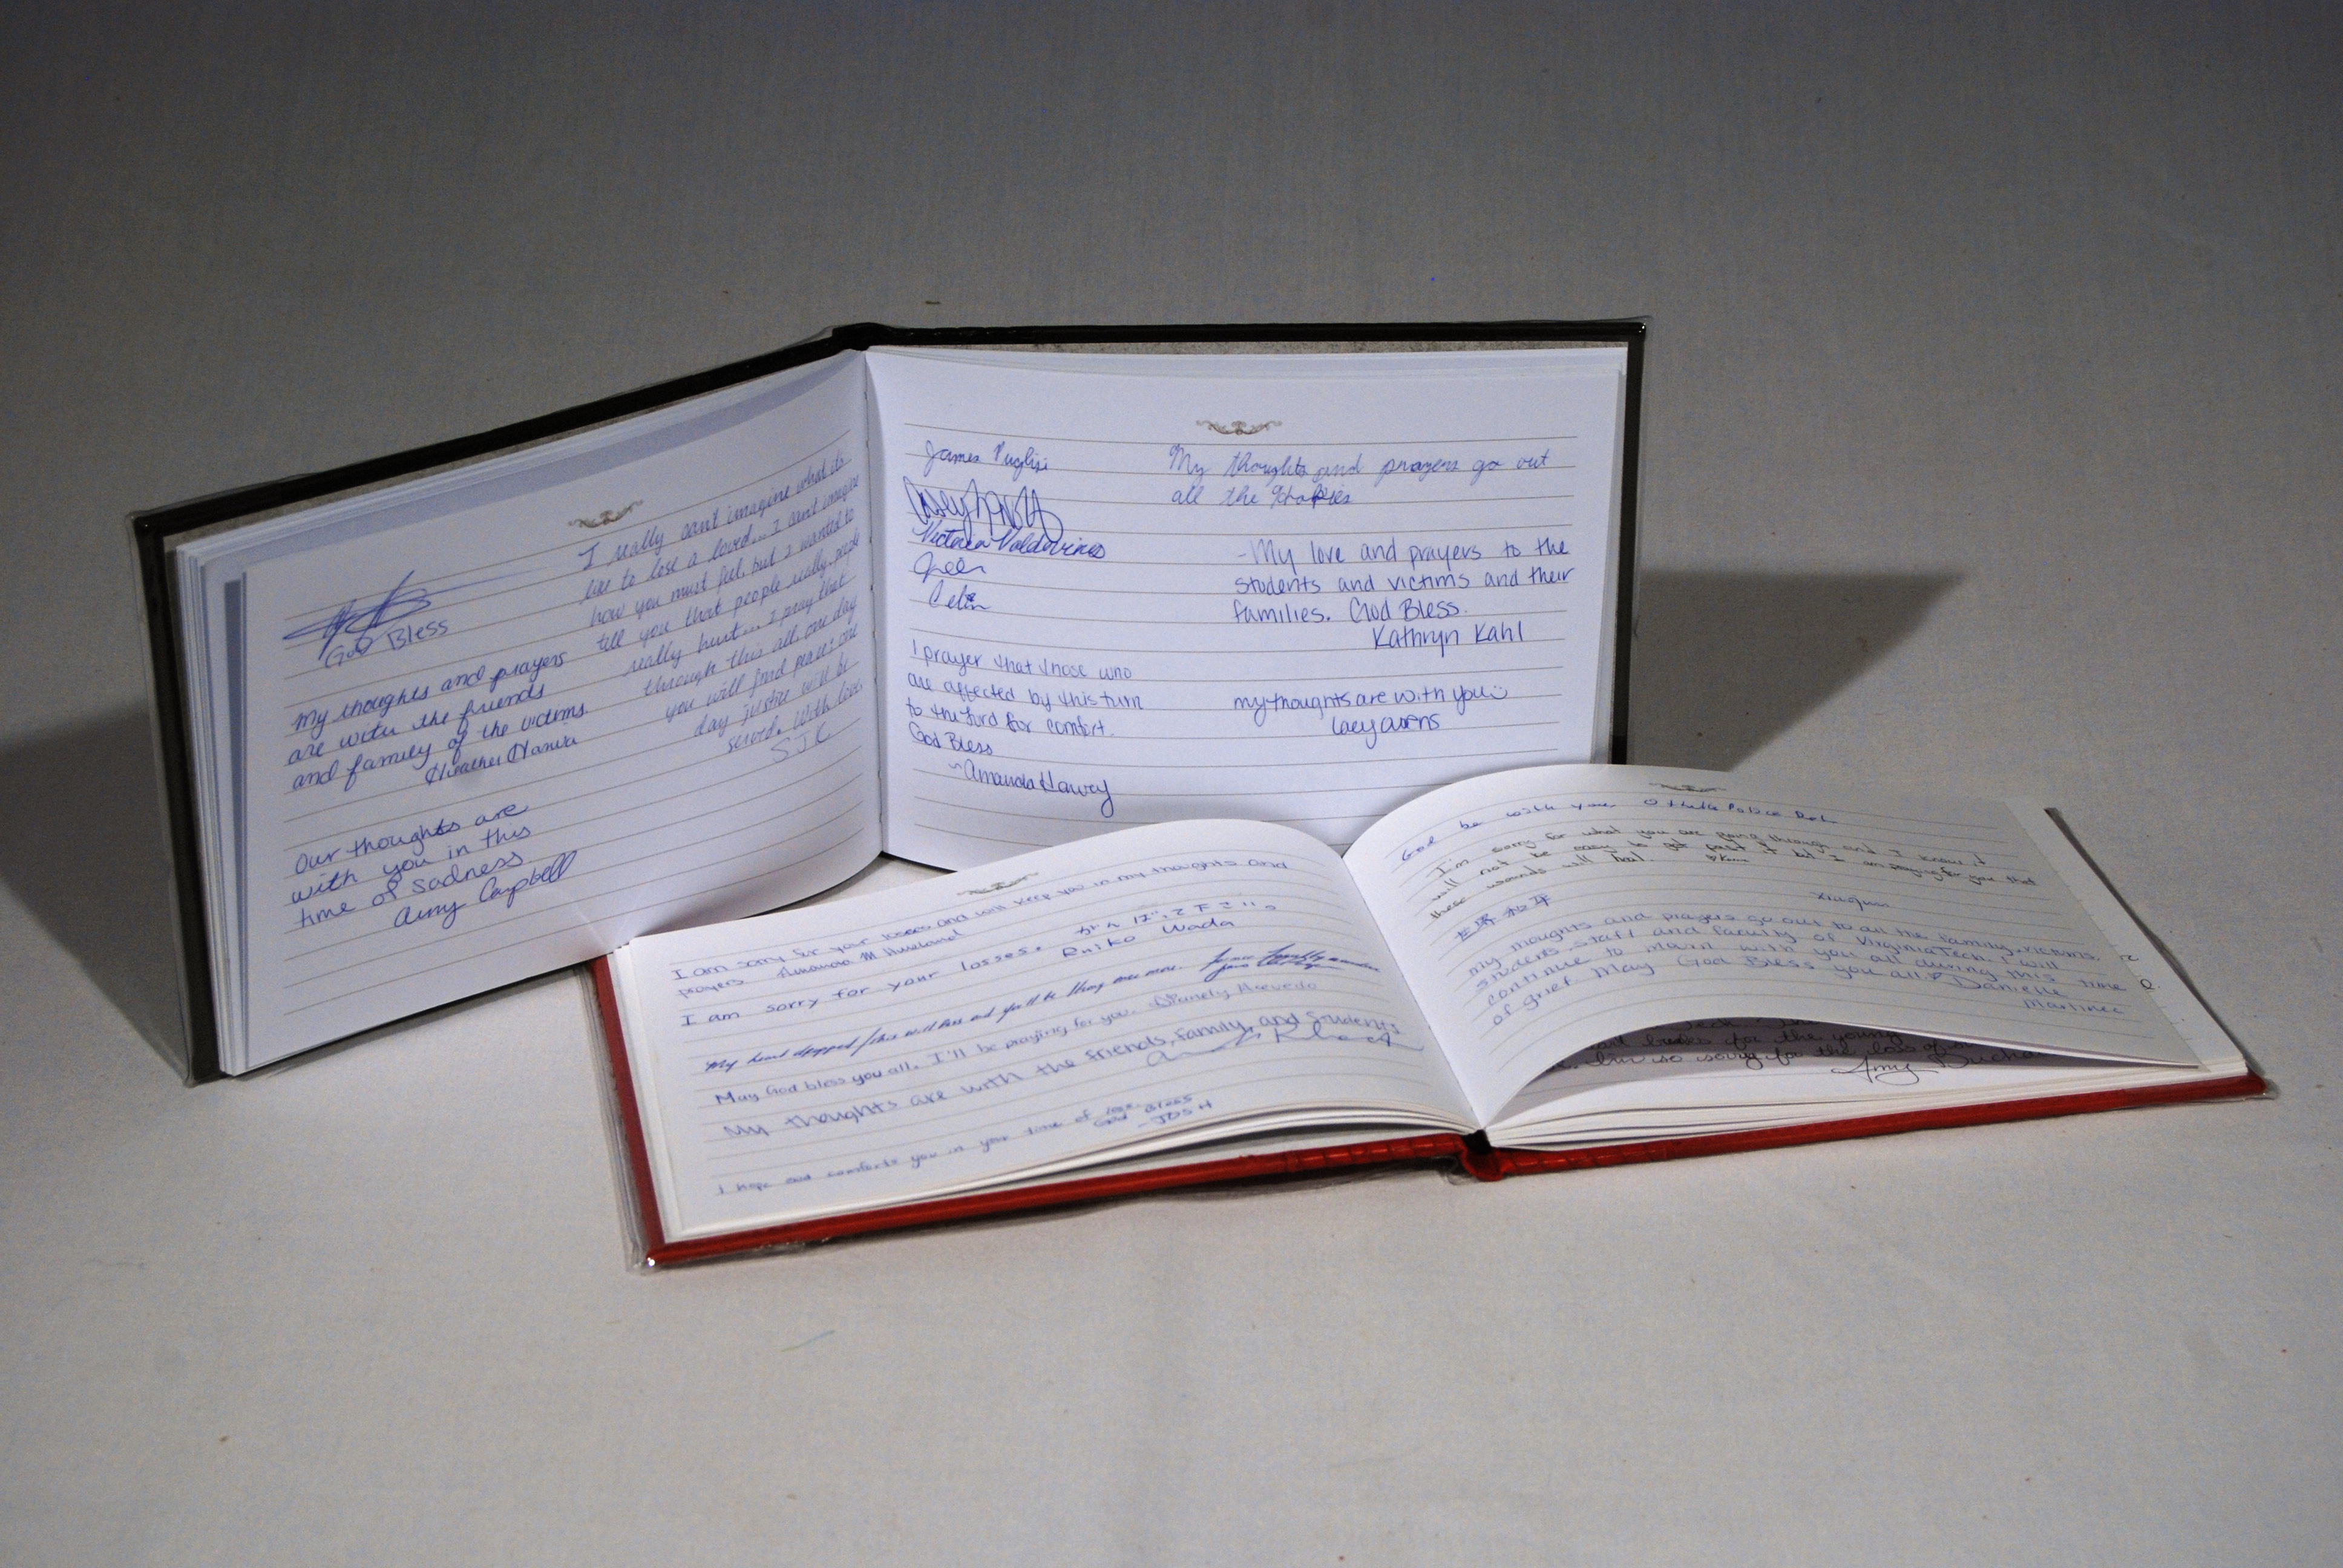 God Bless
My thoughts and prayers
are with the friends
and family of the victims.
Heather
Our thoughts are
with you in this
time of sadness
Amy Campbell
I really can't imagine what its
like to lose a loved... I can't imagine
how you must feel, but I wanted to
tell you that people really, people
really hurt... I pray that
through this all, one day
you will find peace, one
day justice will be
served. With love
SJK
James Puglisi
Victoria Valdovinos
Celin
I prayer that those who
are affected by this turn
to the Lord for comfort.
God Bless
~Amanda
My thoughts and prayers go out
all the
-My love and prayers to the
students and victims and their
families. God Bless.
Kathryn Kahl
my thoughts are with you
I am sorry for your losses and will keep you in my thoughts and
prayers Amanda M
I am sorry for your losses. がんばって下さい。
Wada
My heart
May God bless you all. I'll be praying for you. Acevedo
My thoughts are with the friends, family, and students
I hope God comforts you in your time of loss.
God Bless
JOSH
God be with you, Police
I'm sorry for what you are going through and I know it
will not be easy to get past it but I am praying for you that
these wounds will heal.
世界和平
My thoughts and prayers go out to all the family, victims,
students, staff and faculty of Virginia Tech. I will
continue to mourn with you all during this time
of grief. May God Bless you all!
Danielle
Martinez
for the young
so sorry for the loss of
Amy